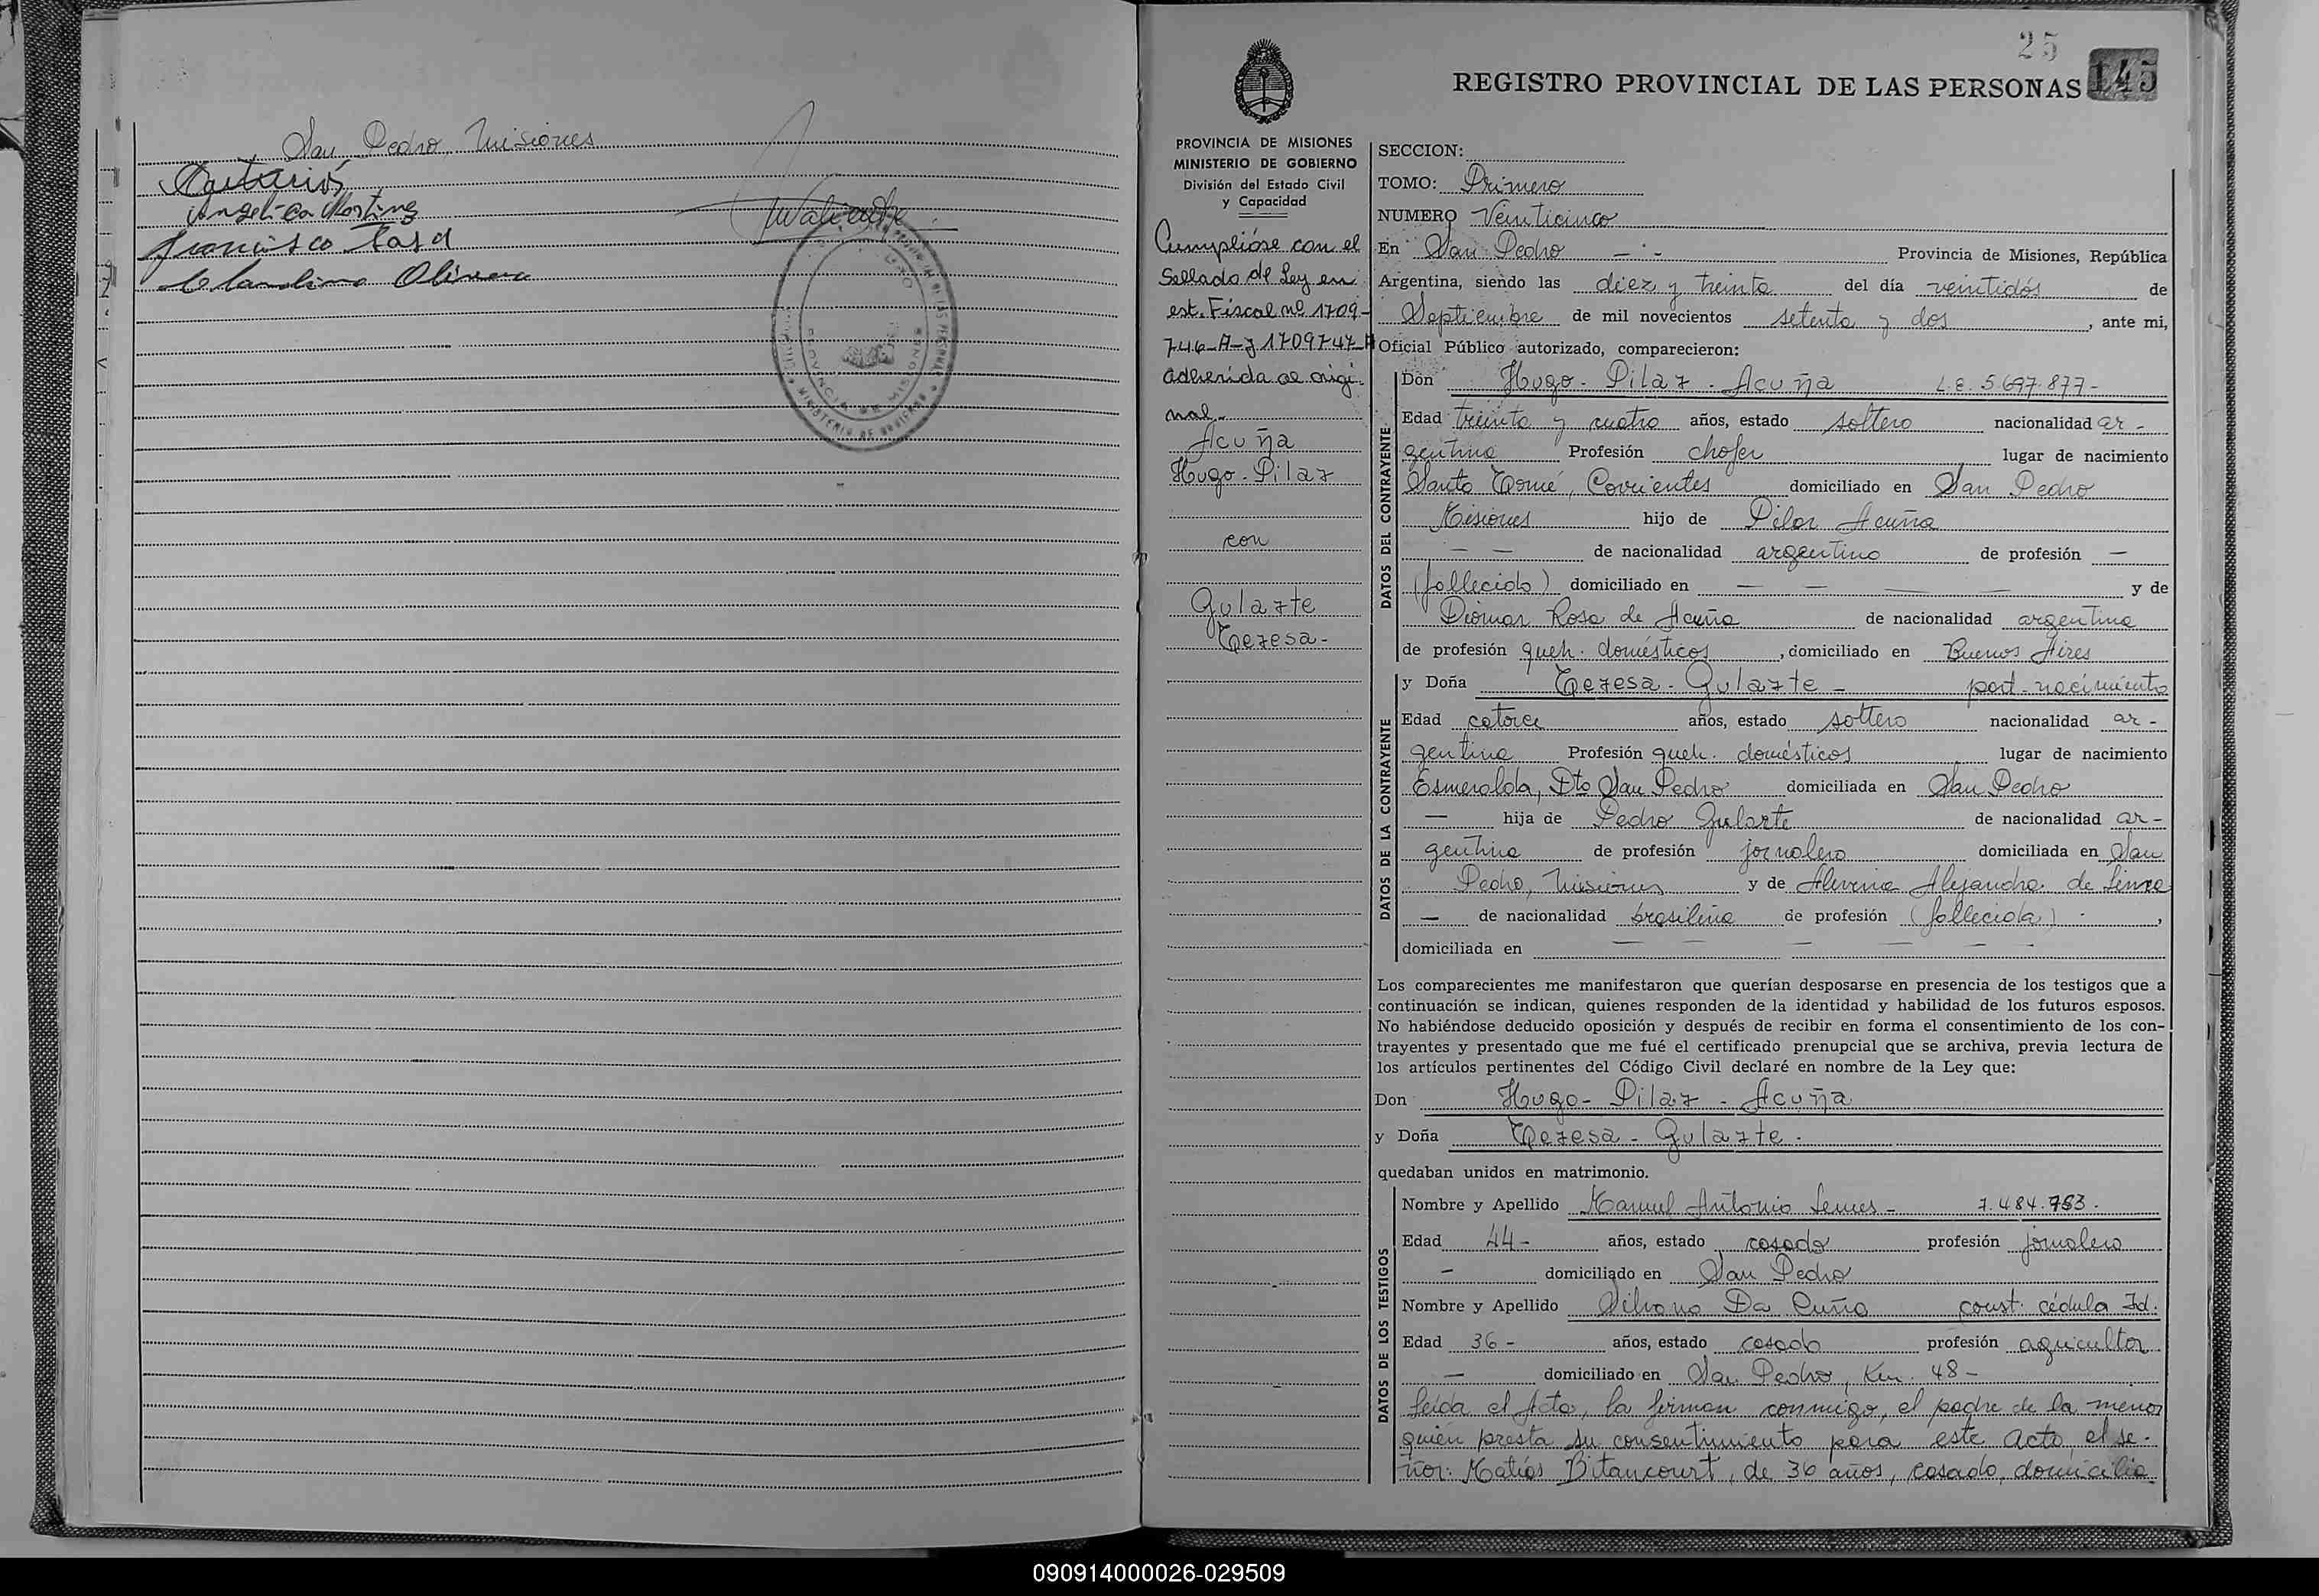 San Pedro, Misiones
Angelica Martinez
Francisco
Olivera
25
145
REGISTRO PROVINCIAL DE LAS PERSONAS
PROVINCIA DE MISIONES
MINISTERIO DE GOBIERNO
División del Estado Civil
y Capacidad
Cumplióse con el
Sellado de Ley en
est. Fiscal nº 1709-
746-A- y 1709747-A
adherida al origi-
nal.-
Acuña
Hugo-Pilar
con
Gularte
Teresa-
SECCION:
TOMO: Primero
NUMERO Veinticinco
En San Pedro — - Provincia de Misiones, República
Argentina, siendo las diez y treinta del día veintidós de
Septiembre de mil novecientos setenta y dos, ante mi,
Oficial Público autorizado, comparecieron:
DATOS DEL CONTRAYENTE
Don Hugo-Pilar-Acuña L.E. 5.697.877-
Edad treinta y cuatro años, estado soltero nacionalidad ar-
gentina Profesión chofer lugar de nacimiento
Santo Tomé, Corrientes domiciliado en San Pedro
Misiones hijo de Pilar Acuña
— — de nacionalidad argentino de profesión —
(fallecido) domiciliado en — — — — y de
Diomar Rosa de Acuña de nacionalidad argentina
de profesión queh. domésticos, domiciliado en Buenos Aires
DATOS DE LA CONTRAYENTE
y Doña Teresa-Gularte- part. nacimiento
Edad catorce años, estado soltera nacionalidad ar-
gentina Profesión queh. domésticos lugar de nacimiento
Esmeralda, Dto San Pedro domiciliada en San Pedro
— hija de Pedro Gularte de nacionalidad ar-
gentina de profesión jornalero domiciliada en San
Pedro, Misiones y de Alverina Alejandra de Lima
— de nacionalidad brasileña de profesión (fallecida) - ,
domiciliada en — — — — — -
Los comparecientes me manifestaron que querían desposarse en presencia de los testigos que a
continuación se indican, quienes responden de la identidad y habilidad de los futuros esposos.
No habiéndose deducido oposición y después de recibir en forma el consentimiento de los con-
trayentes y presentado que me fué el certificado prenupcial que se archiva, previa lectura de
los artículos pertinentes del Código Civil declaré en nombre de la Ley que:
Don Hugo-Pilar-Acuña
y Doña Teresa-Gularte.
quedaban unidos en matrimonio.
DATOS DE LOS TESTIGOS
Nombre y Apellido Manuel Antonio Lemes- 7.484.753.
Edad 44- años, estado casado profesión jornalero
- domiciliado en San Pedro
Nombre y Apellido Silvano Da Cuña const. cédula Id.
Edad 36- años, estado casado profesión agricultor
— domiciliado en San Pedro, Km. 48-
Leída el Acta, la firman conmigo, el padre de la menor
quién presta su consentimiento para este acto, el se-
ñor: Matías Bitancourt, de 36 años, casado, domicilia
090914000026-029509